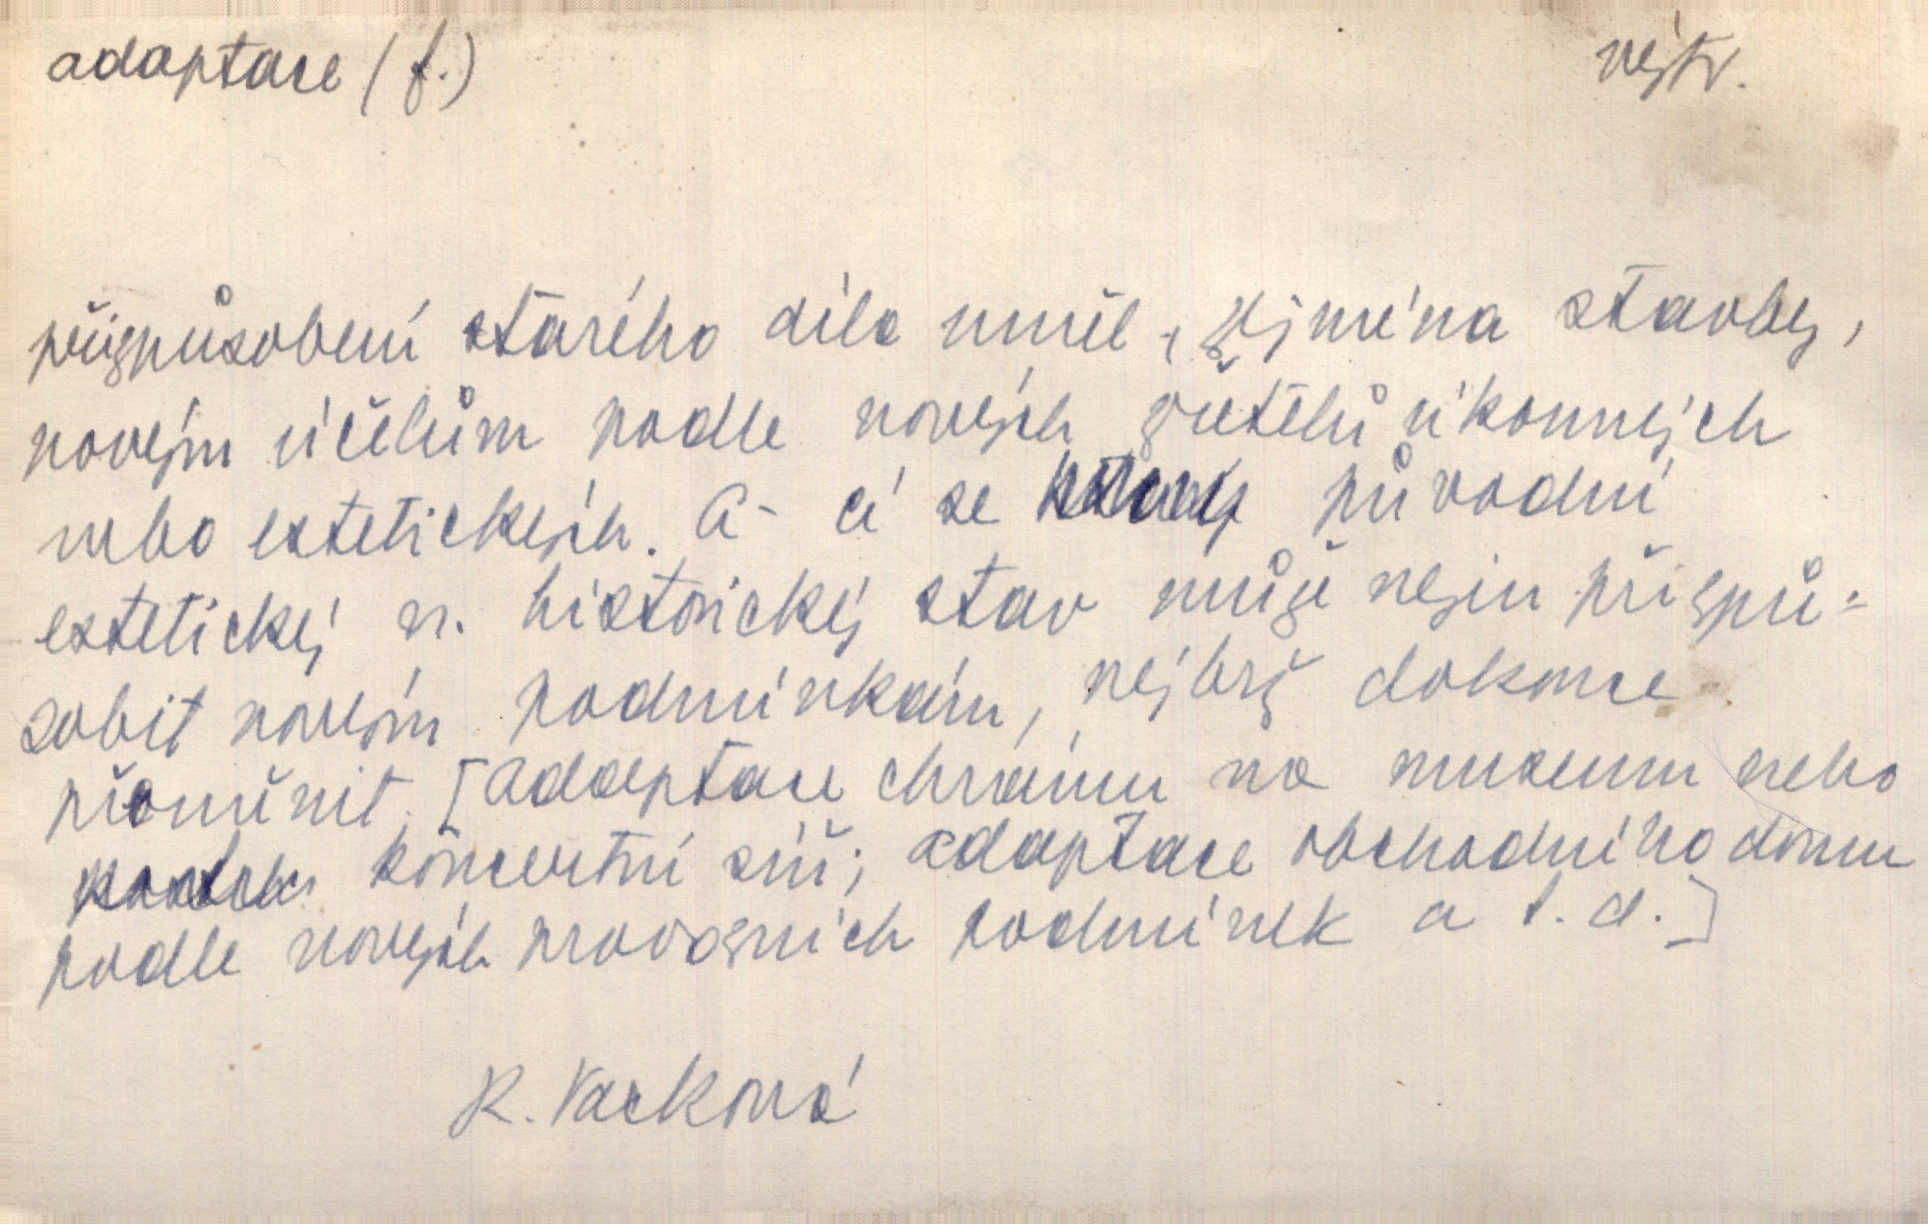 adaptace (f.) výtv.
přizpůsobení starého díla uměl., zejména stavby,
novým účelům podle nových zřetelů úkonných
nebo estetických. A-cí se původní
estetický n. historický stav může nejen přizpů-
sobit novým podmínkám, nejbrž dokonce
přeměnit. [adaptace chrámu na museum nebo
koncertní síň; adaptace obchodního domu
podle nových provozních podmínek a t. d.]
R. Vacková